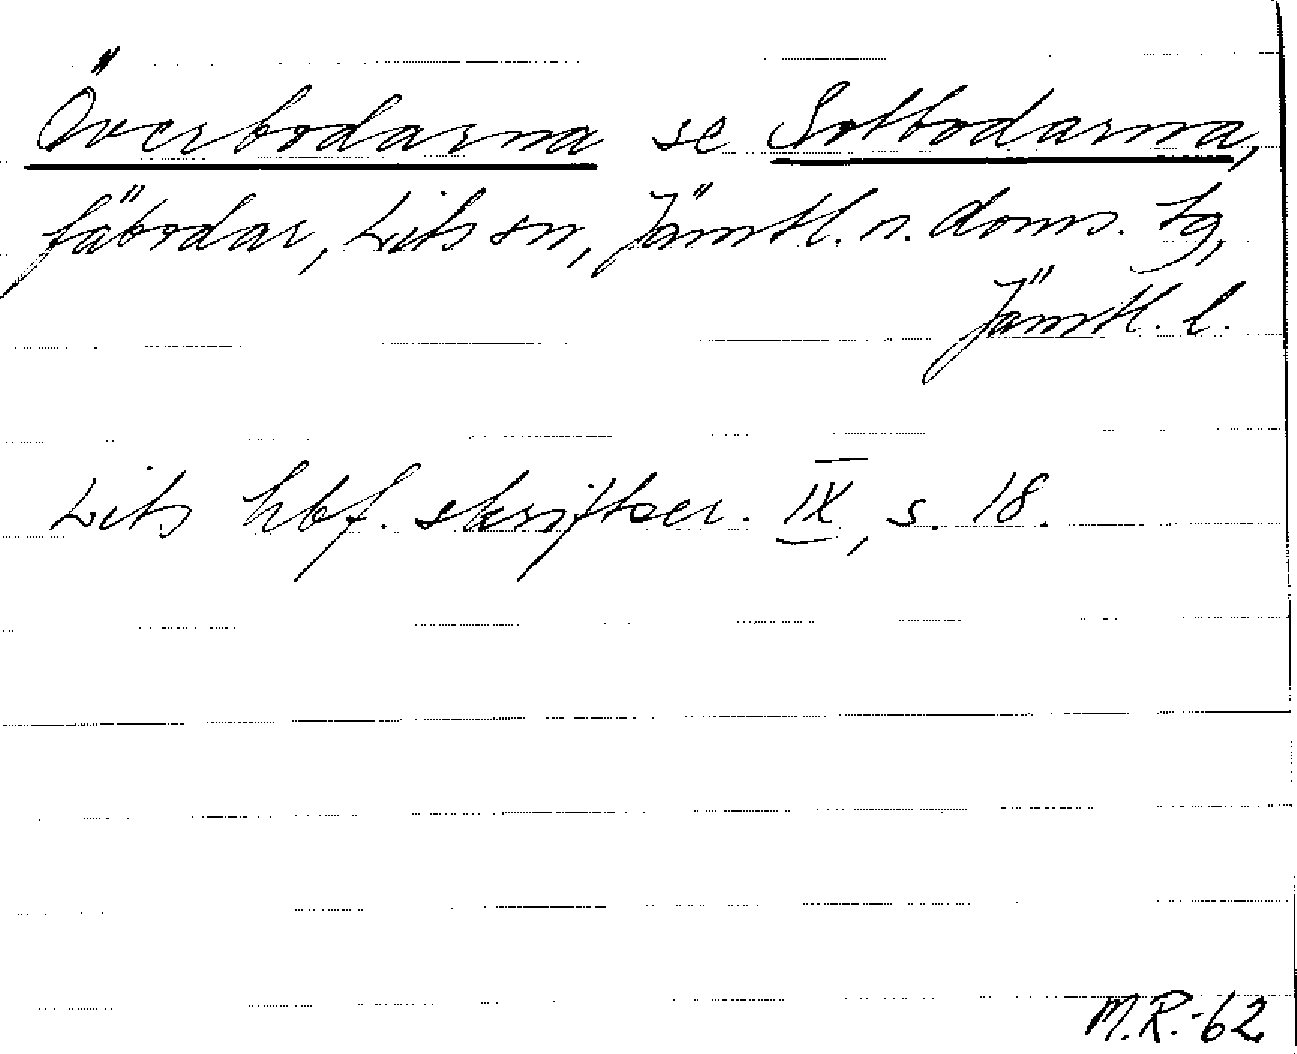 Överbodarna se Sotbodarna,
fäbodar, Lits sn, Jämtl. n. doms. tg,
Jämtl. l.
Lits hbf. skriftser. IX, s. 18.
M.R.-62